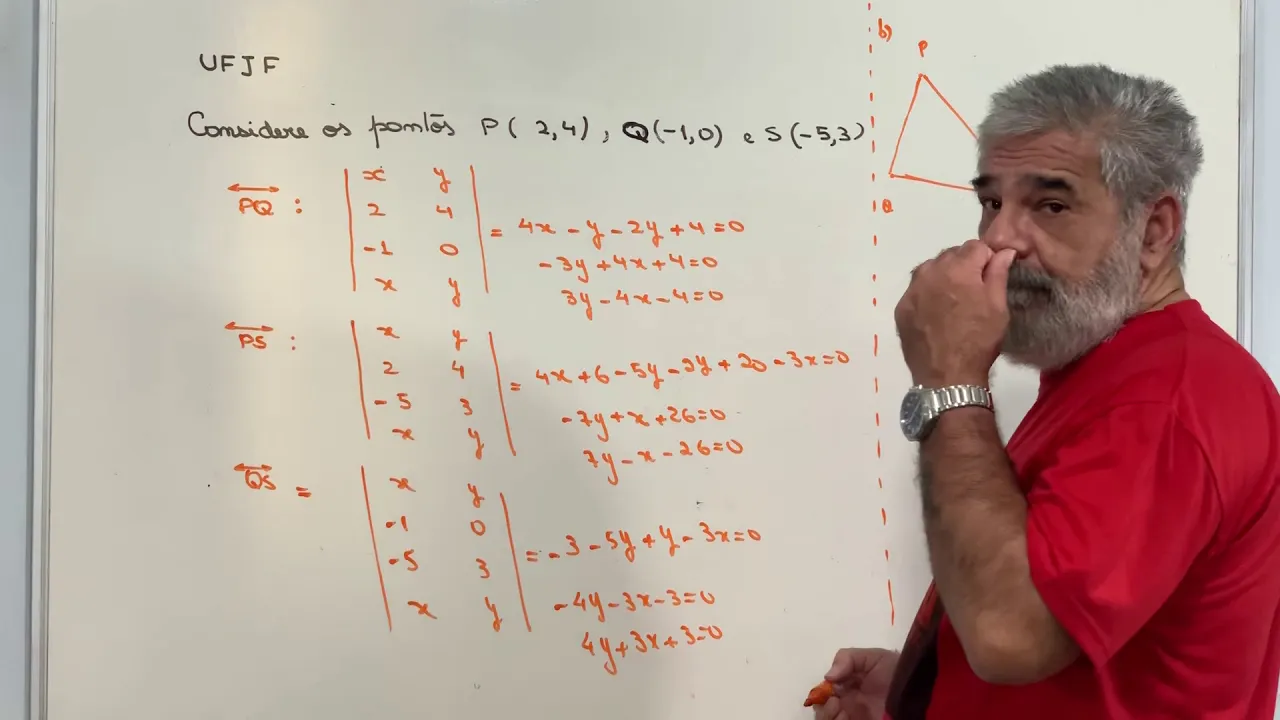 UFJF
Considere os pontos P(2,4), Q(-1,0) e S(-5,3)
PQ : | x y
2 4
-1 0
x y | = 4x - y - 2y + 4 = 0
-3y + 4x + 4 = 0
3y - 4x - 4 = 0
PS : | x y
2 4
-5 3
x y | = 4x + 6 - 5y - 2y + 20 - 3x = 0
-7y + x + 26 = 0
7y - x - 26 = 0
QS = | x y
-1 0
-5 3
x y | = -3 - 5y + y - 3x = 0
-4y - 3x - 3 = 0
4y + 3x + 3 = 0
b)
P
Q